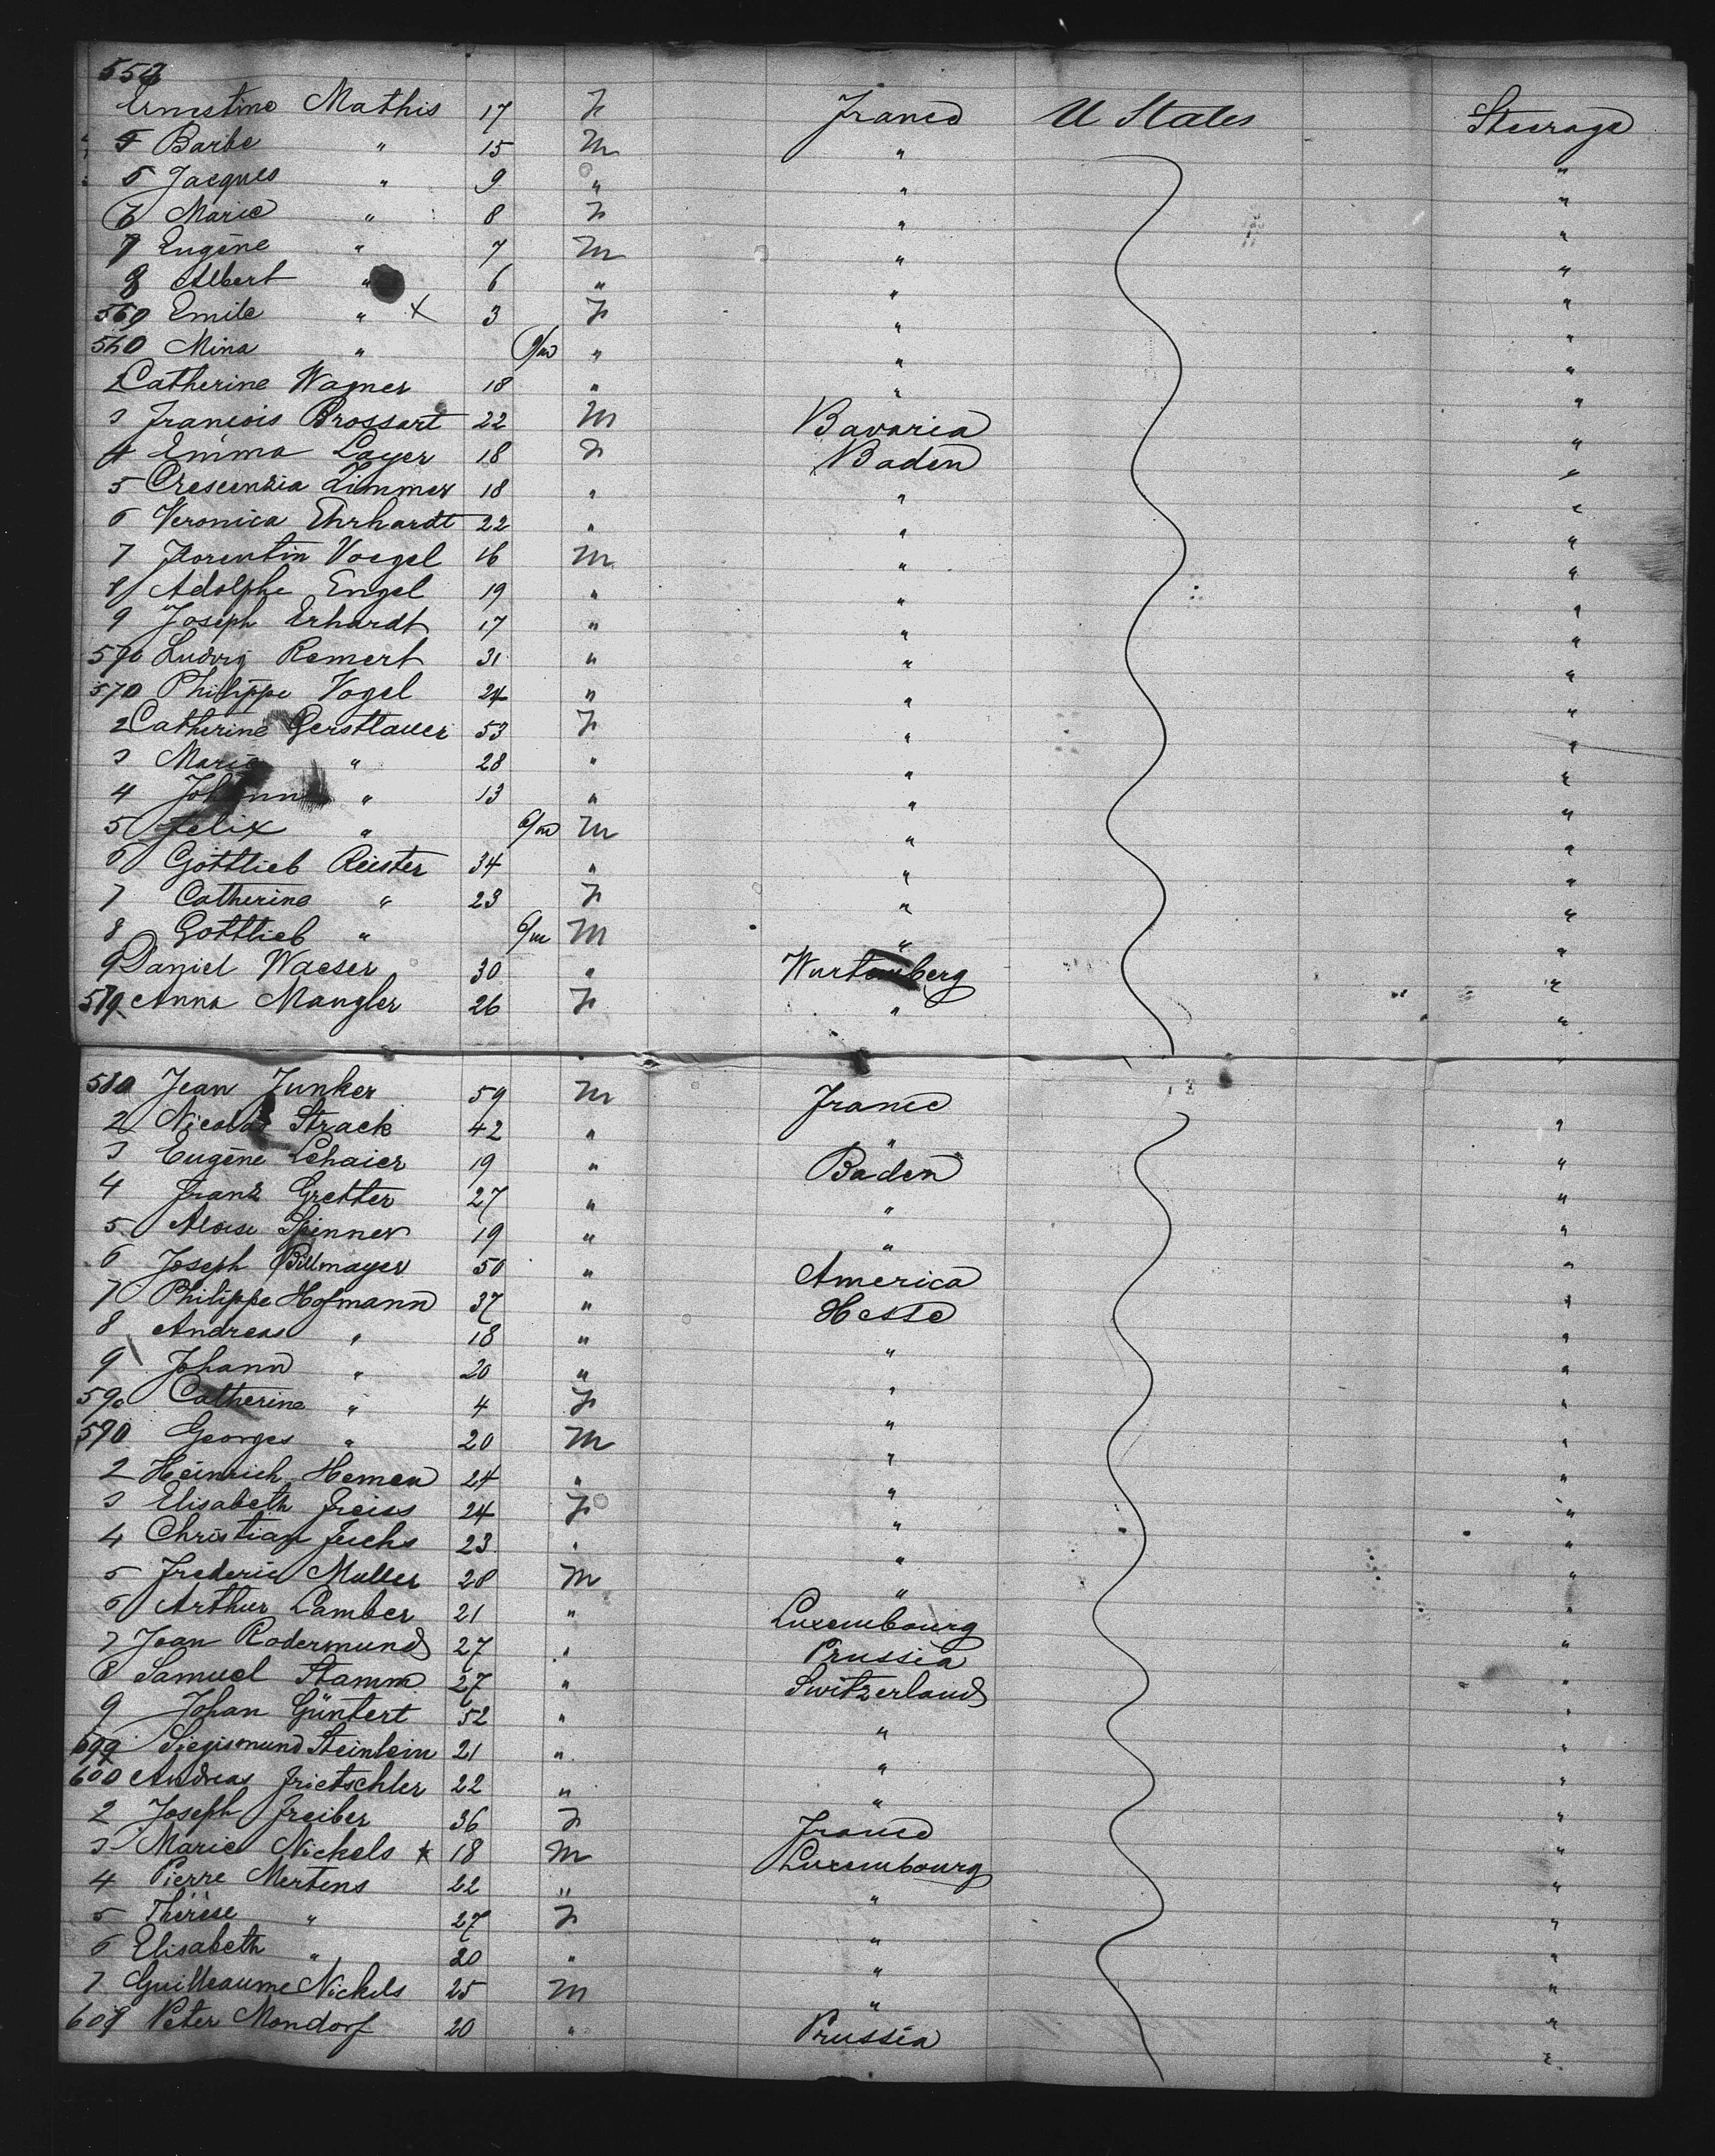 553
Ernestine Mathis 17 F France U States Steerage
4 Barbe " 15 M " "
5 Jacques " 9 " " "
6 Marie " 8 F " "
7 Eugène " 7 M " "
8 Albert " 6 " " "
569 Emile " X 3 F " "
560 Mina " 9/m " " "
2 Catherine Wagner 18 " " "
3 Francois Brossart 22 M Bavaria "
4 Emma Layer 18 F Baden "
5 Crescenzia Zimmer 18 " " "
6 Veronica Ehrhardt 22 " " "
7 Florentin Voegel 16 M " "
8 Adolphe Engel 19 " " "
9 Joseph Erhardt 17 " " "
570 Ludvig Remert 31 " " "
570 Philippe Vogel 24 " " "
2 Catherine Gerstlauer 53 F " "
3 Marie " 28 " " "
4 Johann " 13 " " "
5 Felix " 6/m M " "
6 Gottlieb Reister 34 " " "
7 Catherine " 23 F " "
8 Gottlieb " 6/m M " "
9 Daniel Waeser 30 " Wurtemberg "
579 Anna Mangler 26 F " "
580 Jean Junker 59 M France "
2 Nicolas Strack 42 " " "
3 Eugène Lehaier 19 " Baden "
4 Franz Gretter 27 " " "
5 Aloise Spinner 19 " " "
6 Joseph Billmayer 50 " America "
7 Philippe Hofmann 37 " Hesse "
8 Andreas " 18 " " "
9 Johann " 20 " " "
590 Catherine " 4 F " "
590 Georges " 20 M " "
2 Heinrich Hemen 24 " " "
3 Elisabeth Freiss 24 F " "
4 Christian Fuchs 23 " " "
5 Frederic Muller 28 M " "
6 Arthur Lamber 21 " Luxembourg "
7 Jean Rodermund 27 " Prussia "
8 Samuel Stamm 27 " Switzerland "
9 Johan Güntert 52 " " "
599 Siegismund Steinlein 21 " " "
600 Andreas Frietschler 22 " " "
2 Joseph Freiber 36 F France "
3 Marie Nickels X 18 M Luxembourg "
4 Pierre Mertens 22 " " "
5 Thérèse " 27 F " "
6 Elisabeth " 20 " " "
7 Guilleaume Nickels 25 M " "
608 Peter Mondorf 20 " Prussia "